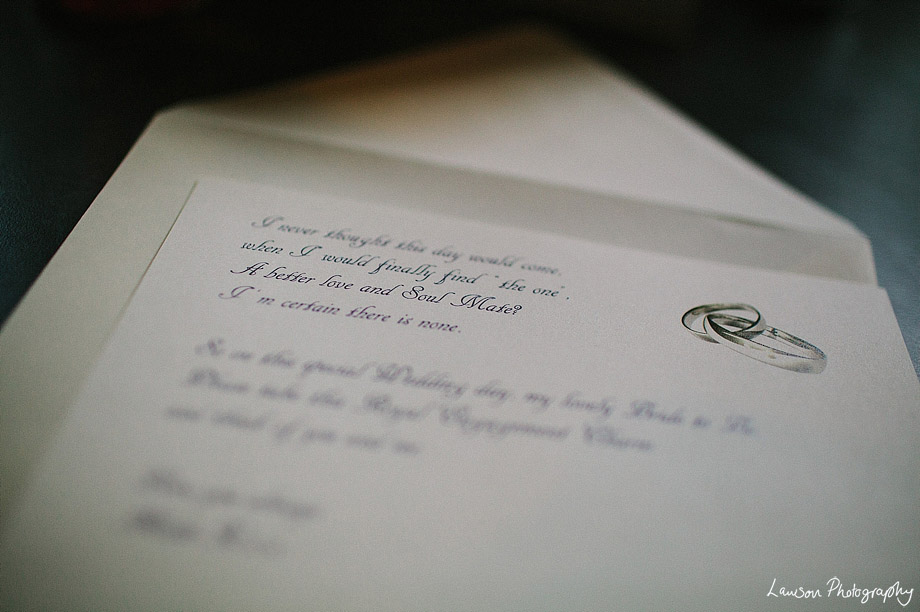 I never thought this day would come,
when I would finally find "the one",
A better love and Soul Mate?
I'm certain there is none.
So on this special Wedding day, my lovely Bride to Be,
Please take this Royal Engagement Charm
and think of you and me.
Lawson Photography